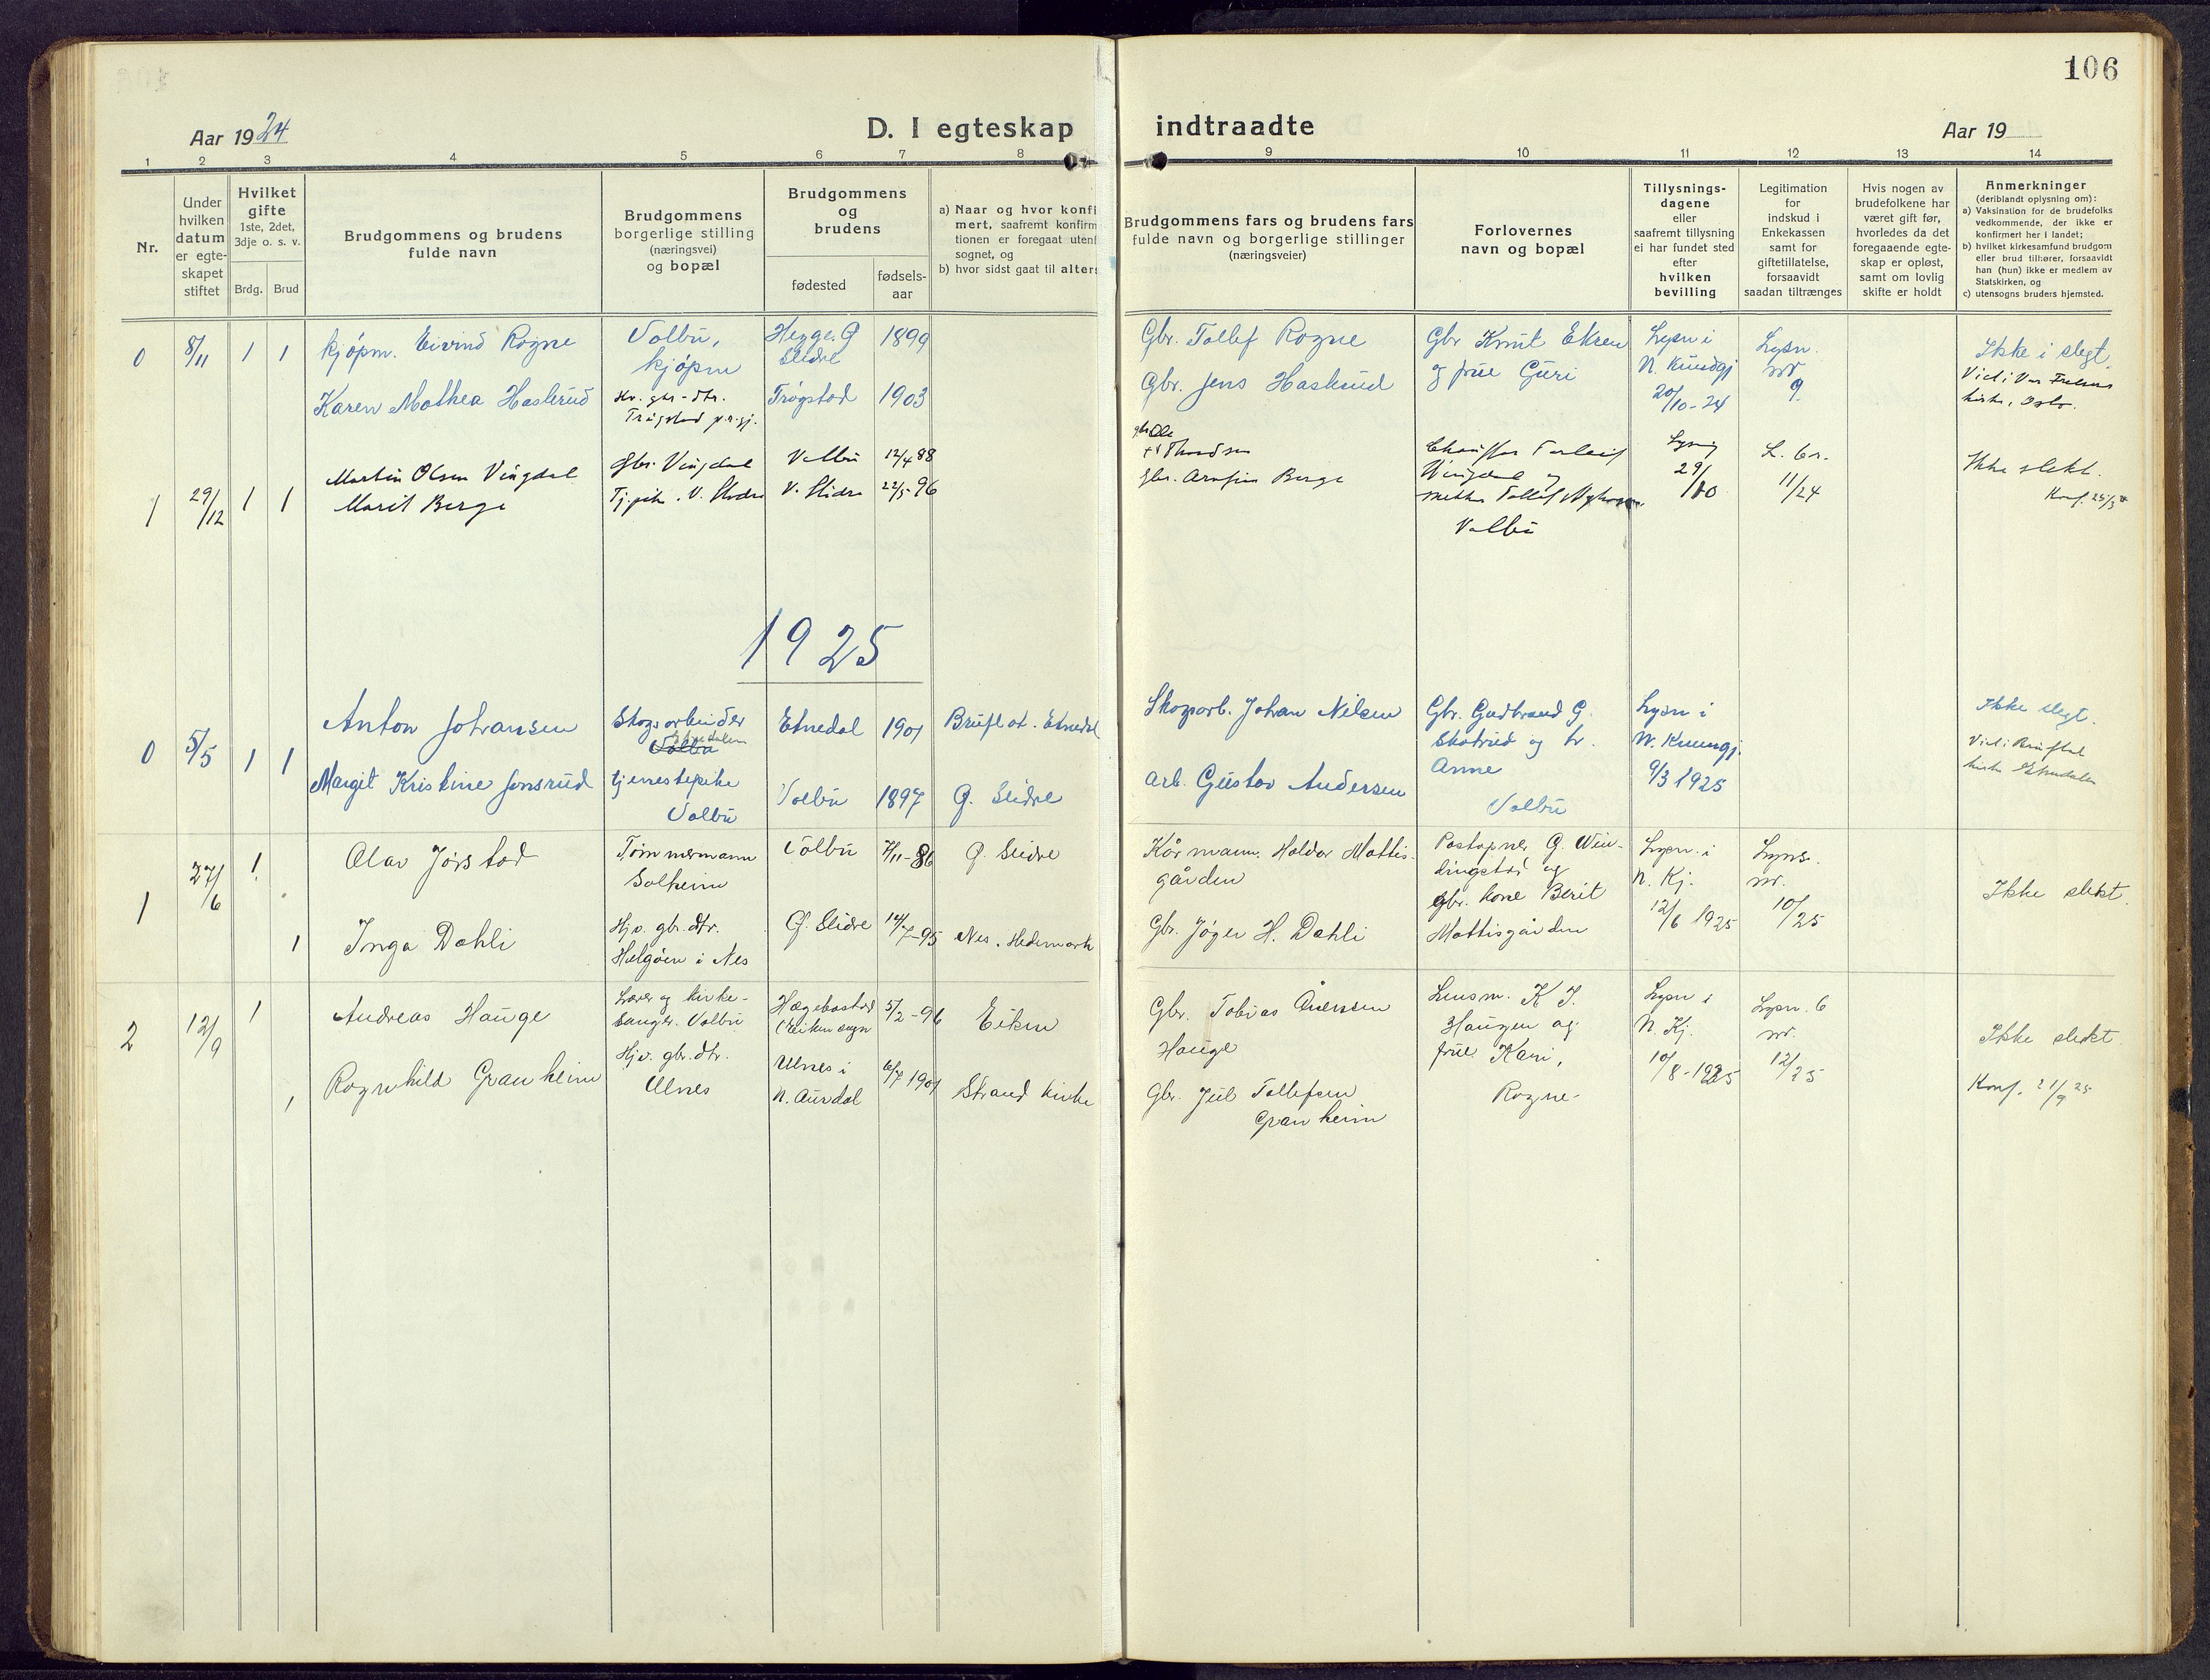 106
Aar 1924
D. I egteskap indtraadte
Aar 19
1 2 3 4 5 6 7 8 9 10 11 12 13 14
Nr.
Under
hvilken
datum
er egte-
skapet
stiftet
Hvilket
gifte
1ste, 2det,
3dje o. s. v.
Brdg. Brud
Brudgommens og brudens
fulde navn
Brudgommens
borgerlige stilling
(næringsvei)
og bopæl
Brudgommens
og
brudens
fødested
fødsels-
aar
a) Naar og hvor konfi
mert, saafremt konfirm
tionen er foregaat uten
sognet, og
b) hvor sidst gaat til alters
Brudgommens fars og brudens fars
fulde navn og borgerlige stillinger
(næringsveier)
Forlovernes
navn og bopæl
Tillysnings-
dagene
eller
saafremt tillysning
ei har fundet sted
efter
hvilken
bevilling
Legitimation
for
indskud i
Enkekassen
samt for
giftetillatelse,
forsaavidt
saadan tiltrænges
Hvis nogen av
brudefolkene har
været gift før,
hvorledes da det
foregaaende egte-
skap er opløst,
samt om lovlig
skifte er holdt
Anmerkninger
(deriblandt oplysning om):
a) Vaksination for de brudefolks
vedkommende, der ikke er
konfirmert her i landet;
b) hvilket kirkesamfund brudgom
eller brud tilhører, forsaavidt
han (hun) ikke er medlem av
Statskirken, og
c) utensogns bruders hjemsted.
0 8/11 1 1
kjøpm. Eivind Rogne
Karen Mathea Haslerud
Volbu,
kjøpm
Hv. gbr-dtr.
Trøgstad p.r.gj.
Hegge. Ø
Slidre 1899
Trøgstad 1903
Gbr. Tollef Rogne
Gbr. Jens Haslerud
Gbr Knut Eksen
og frue Guri
Lysn i
N. Kundgj
20/10-24
Lysn.
nr.
9
Ikke i slegt.
Viet i Vår Frelsers
kirke, Oslo.
1 29/12 1 1
Martin Olsen Vingdal
Marit Berge
Gbr. Vingdal
Tj.pike. V. Slidre
Volbu 12/4 88
V. Slidre 22/5-96
gbr Ole
Thordsen
gbr. Arnfin Berge
Chauffør Torleif
Vingdal og
Tollef
Volbu
Lysning
29/10
L. br.
11/24
Ikke slekt.
Konf.
1925
0 5/5 1 1
Anton Johansen
Margit Kristine Jonsrud
Skogsarbeider
Etnedalen
Volbu
tjenestepike
Volbu
Etnedal 1901
Volbu 1897
Bruflat. Etnedal
Ø. Slidre
Skogarb. Johan Nilsen
Arb. Gustav Andersen
Gbr. Gudbrand G.
Skotrud og hr.
Anne
Volbu
Lysn i
N. Kunngj.
9/3 1925
Ikke slegt.
Viet i Bruflat
kirke Etnedalen
1 27/6 1 1
Olav Jørstad
Inga Dahli
Tømmermann
Solheim
Hjv. gbr.dtr.
Helgøen i Nes
Volbu 7/11-86
Ø. Slidre 14/7-95
Ø. Slidre
Nes. Hedemark
Kårmann. Haldor Mattis-
gården
Gbr. Jøger H. Dahli
Postopner G. Win-
dingstad og
gbr. kone Berit
Mattisgården
Lysn. i
N. Kj.
12/6 1925
Lysn.
nr.
10/25
Ikke slekt.
2 12/9 1 1
Andreas Hauge
Ragnhild Granheim
Lærer og kirke-
sanger. Volbu
Hjv. gbr.dtr.
Ulnes
Hægebostad
(Eiken sogn 5/2-96
Ulnes i
N. Aurdal 6/7 1901
Eiken
Strand kirke
Gbr. Tobias Ånensen
Hauge
Gbr. Jul Tollefsen
Granheim
Lensm. K J.
Haugen og
frue Kari,
Rogne-
Lysn i
N. Kj.
10/8-1925
Lysn. 6
nr.
12/25
Ikke slekt.
Konf. 21/9 25